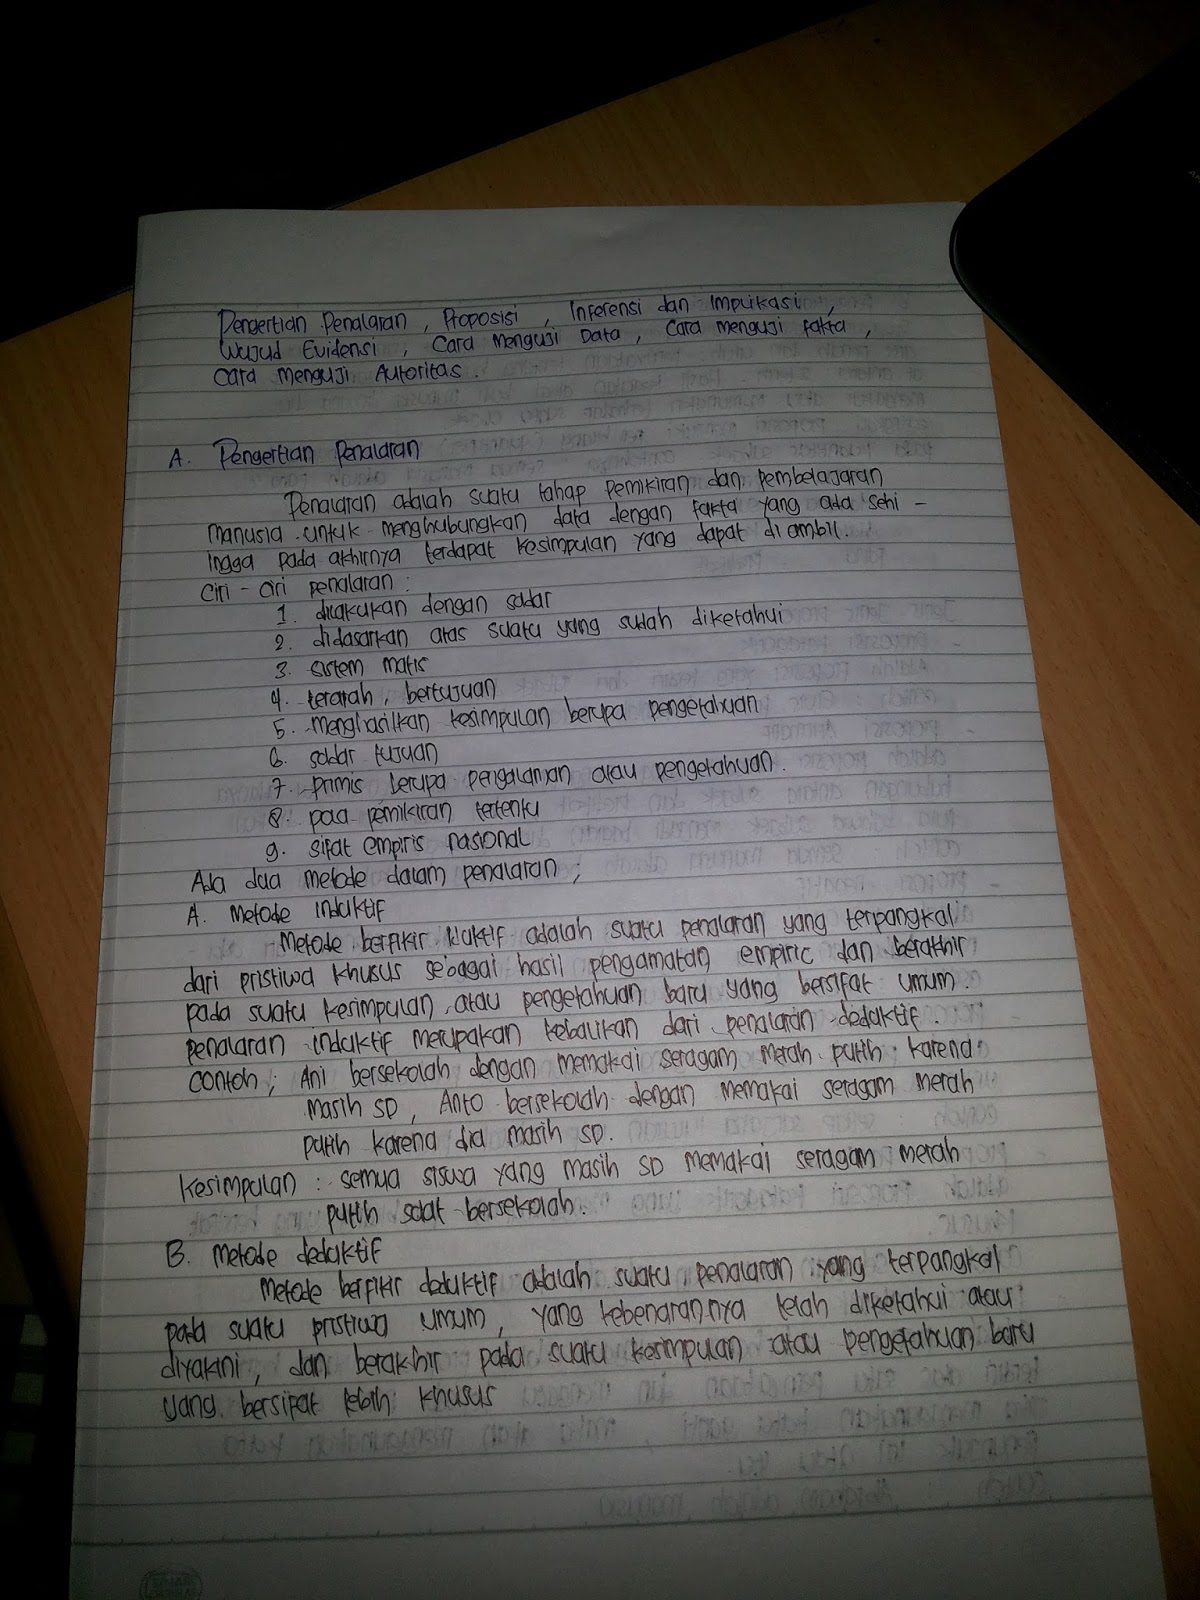 Pengertian Penalaran , Proposisi , Inferensi dan Implikasi ,
Wujud Evidensi , Cara Menguji Data , Cara menguji fakta ,
Cara menguji Autoritas .
A. Pengertian Penalaran
Penalaran adalah suatu tahap pemikiran dan pembelajaran
manusia untuk menghubungkan data dengan fakta yang ada sehi -
ingga pada akhirnya terdapat kesimpulan yang dapat di ambil.
Ciri - ciri penalaran :
1. dilakukan dengan sadar
2. didasarkan atas suatu yang sudah diketahui
3. sistem matis
4. terarah, bertujuan
5. menghasilkan kesimpulan berupa pengetahuan
6. sadar tujuan
7. primis berupa pengalaman atau pengetahuan.
8. pada pemikiran tertentu
9. sifat empiris nasional
Ada dua metode dalam penalaran ;
A. Metode induktif
Metode berfikir iduktif adalah suatu penalaran yang terpangkal
dari pristiwa khusus sebagai hasil pengamatan empiric dan berakhir
pada suatu kerimpulan atau pengetahuan baru yang bersifat umum.
penalaran induktif merupakan kebalikan dari penalaran deduktif.
Contoh ; Ani bersekolah dengan memakai seragam merah putih karena
masih SD, Anto bersekolah dengan memakai seragam merah
putih karena dia masih SD.
Kesimpulan : semua siswa yang masih SD memakai seragam merah
putih saat bersekolah.
B. Metode deduktif
Metode berfikir deduktif adalah suatu penalaran yang terpangkal
pada suatu pristiwa umum, yang kebenarannya telah diketahui atau
diyakini, dan berakhir pada suatu kesimpulan atau pengetahuan baru
yang bersifat lebih khusus